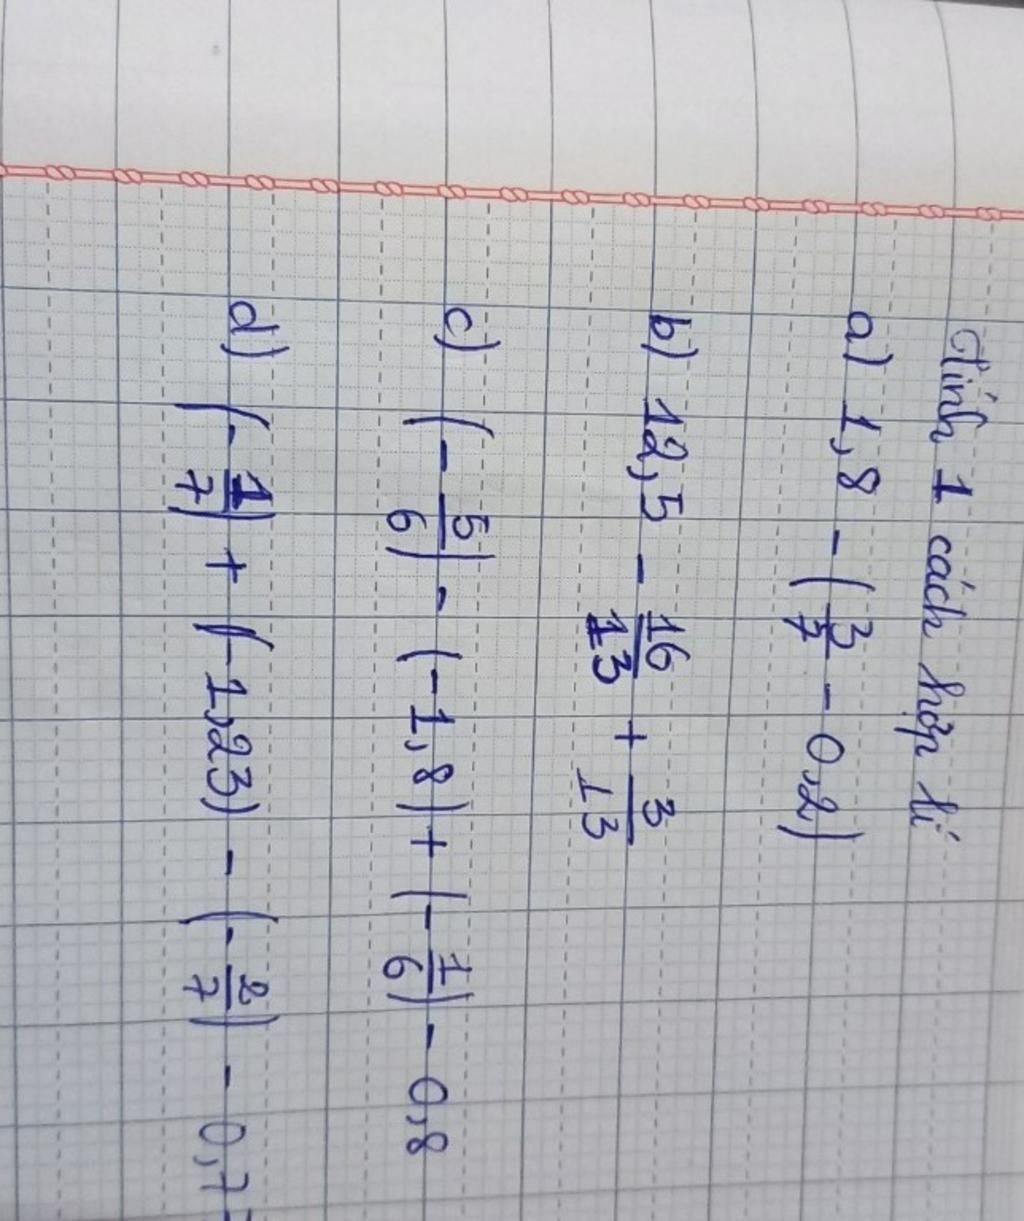 Tính 1 cách hợp lí
a) 1,8 - (3/7 - 0,2)
b) 12,5 - 16/13 + 3/13
c) (-5/6) - (-1,8) + (-1/6) - 0,8
d) (-1/7) + (-1,23) - (-2/7) - 0,7